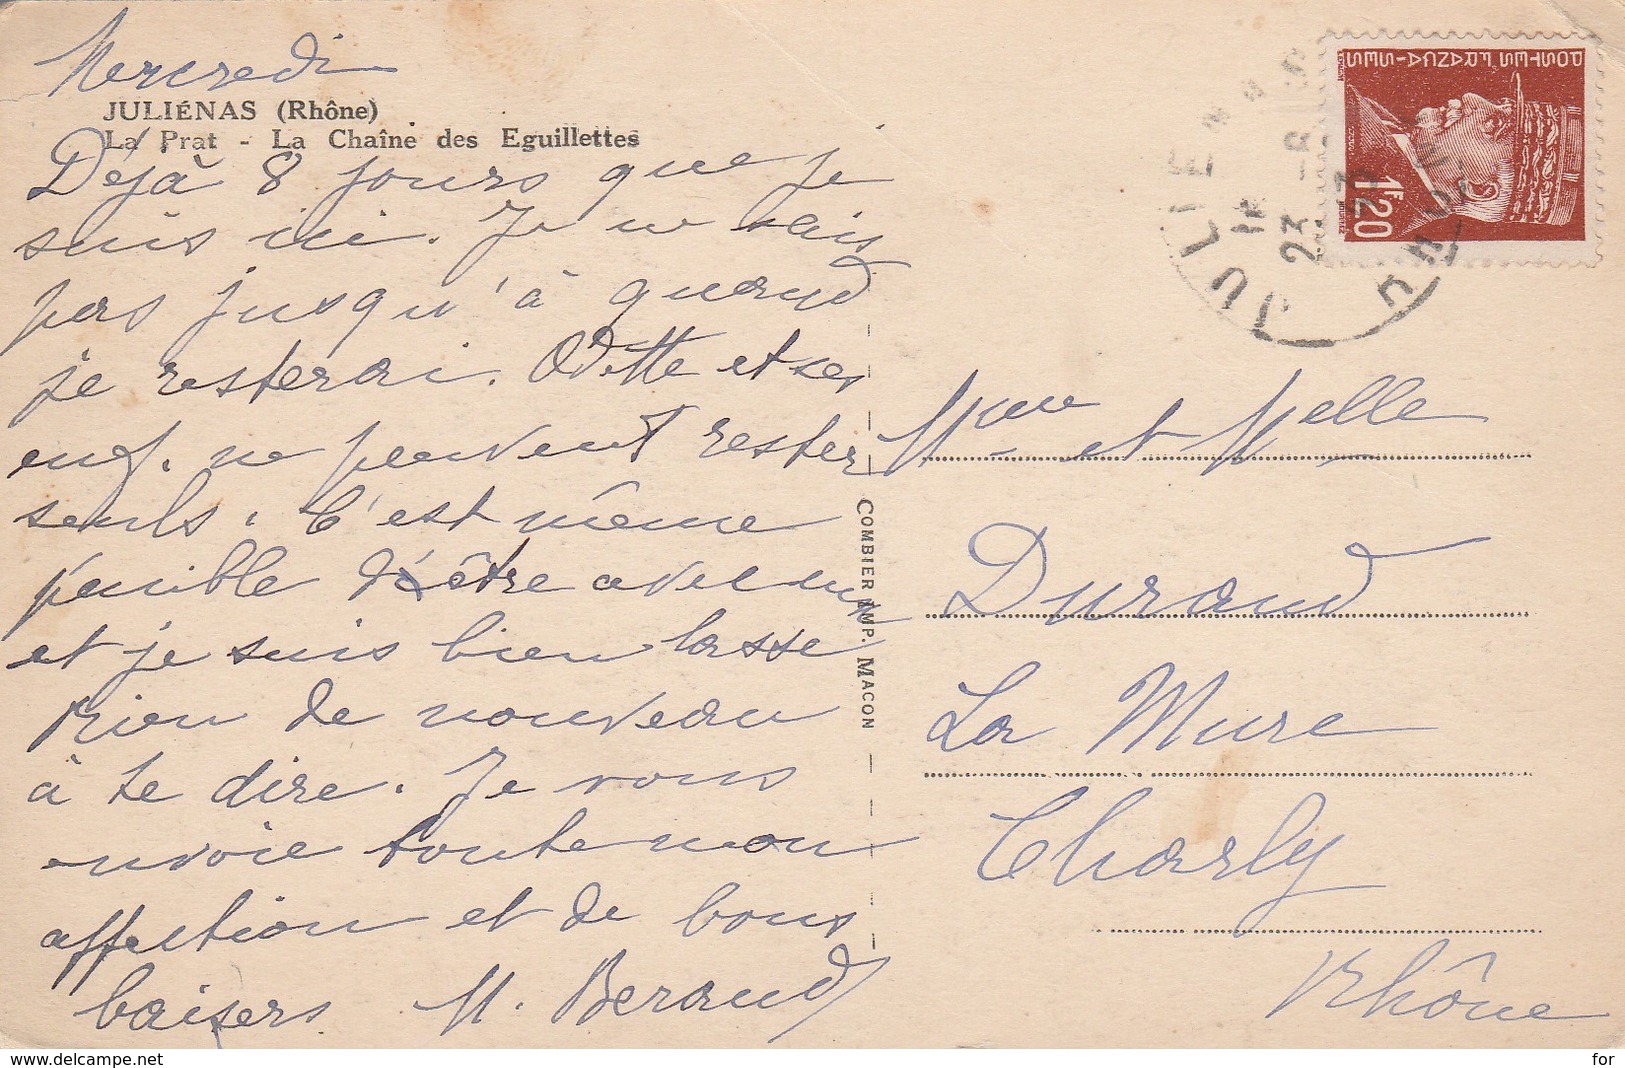 Mercredi
JULIÉNAS (Rhône)
La Prat - La Chaîne des Eguillettes
Déjà 8 jours que je
suis ici. Je ne sais
pas jusqu'à quand
je resterai. Odette et ses
enf. ne peuvent rester
seuls. C'est même
pénible d'être avec eux
et je suis bien lasse
Rien de nouveau
à te dire. Je vous
envoie toute mon
affection et de bons
baisers M. Beraud
COMBIER IMP. MACON
POSTES FRANÇAISES
1F20
JULIÉNAS
23 -8
43
RHÔNE
Mme et Melle
Durand
La Mure
Charly
Rhône
delcampe.net
for